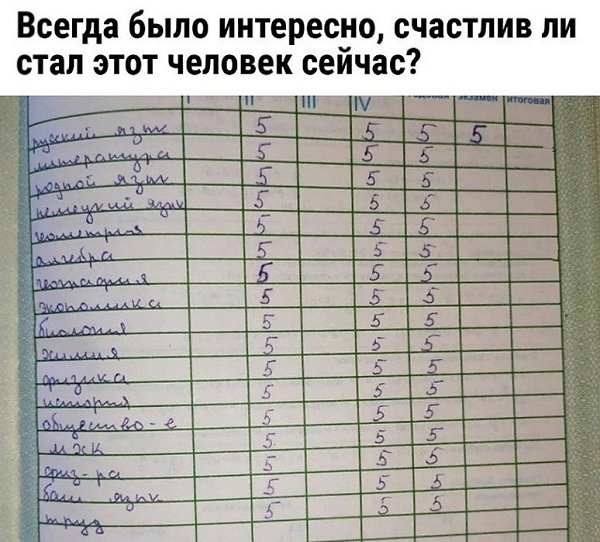 Всегда было интересно, счастлив ли
стал этот человек сейчас?
I II III IV годовая экзамен итоговая
русский язык 5 5 5 5
литература 5 5 5
родной язык 5 5 5
немецкий язык 5 5 5
геометрия 5 5 5
алгебра 5 5 5
география 5 5 5
экономика 5 5 5
биология 5 5 5
химия 5 5 5
физика 5 5 5
история 5 5 5
общество-е 5 5 5
мхк 5 5 5
физ-ра 5 5 5
баш язык 5 5 5
труд 5 5 5